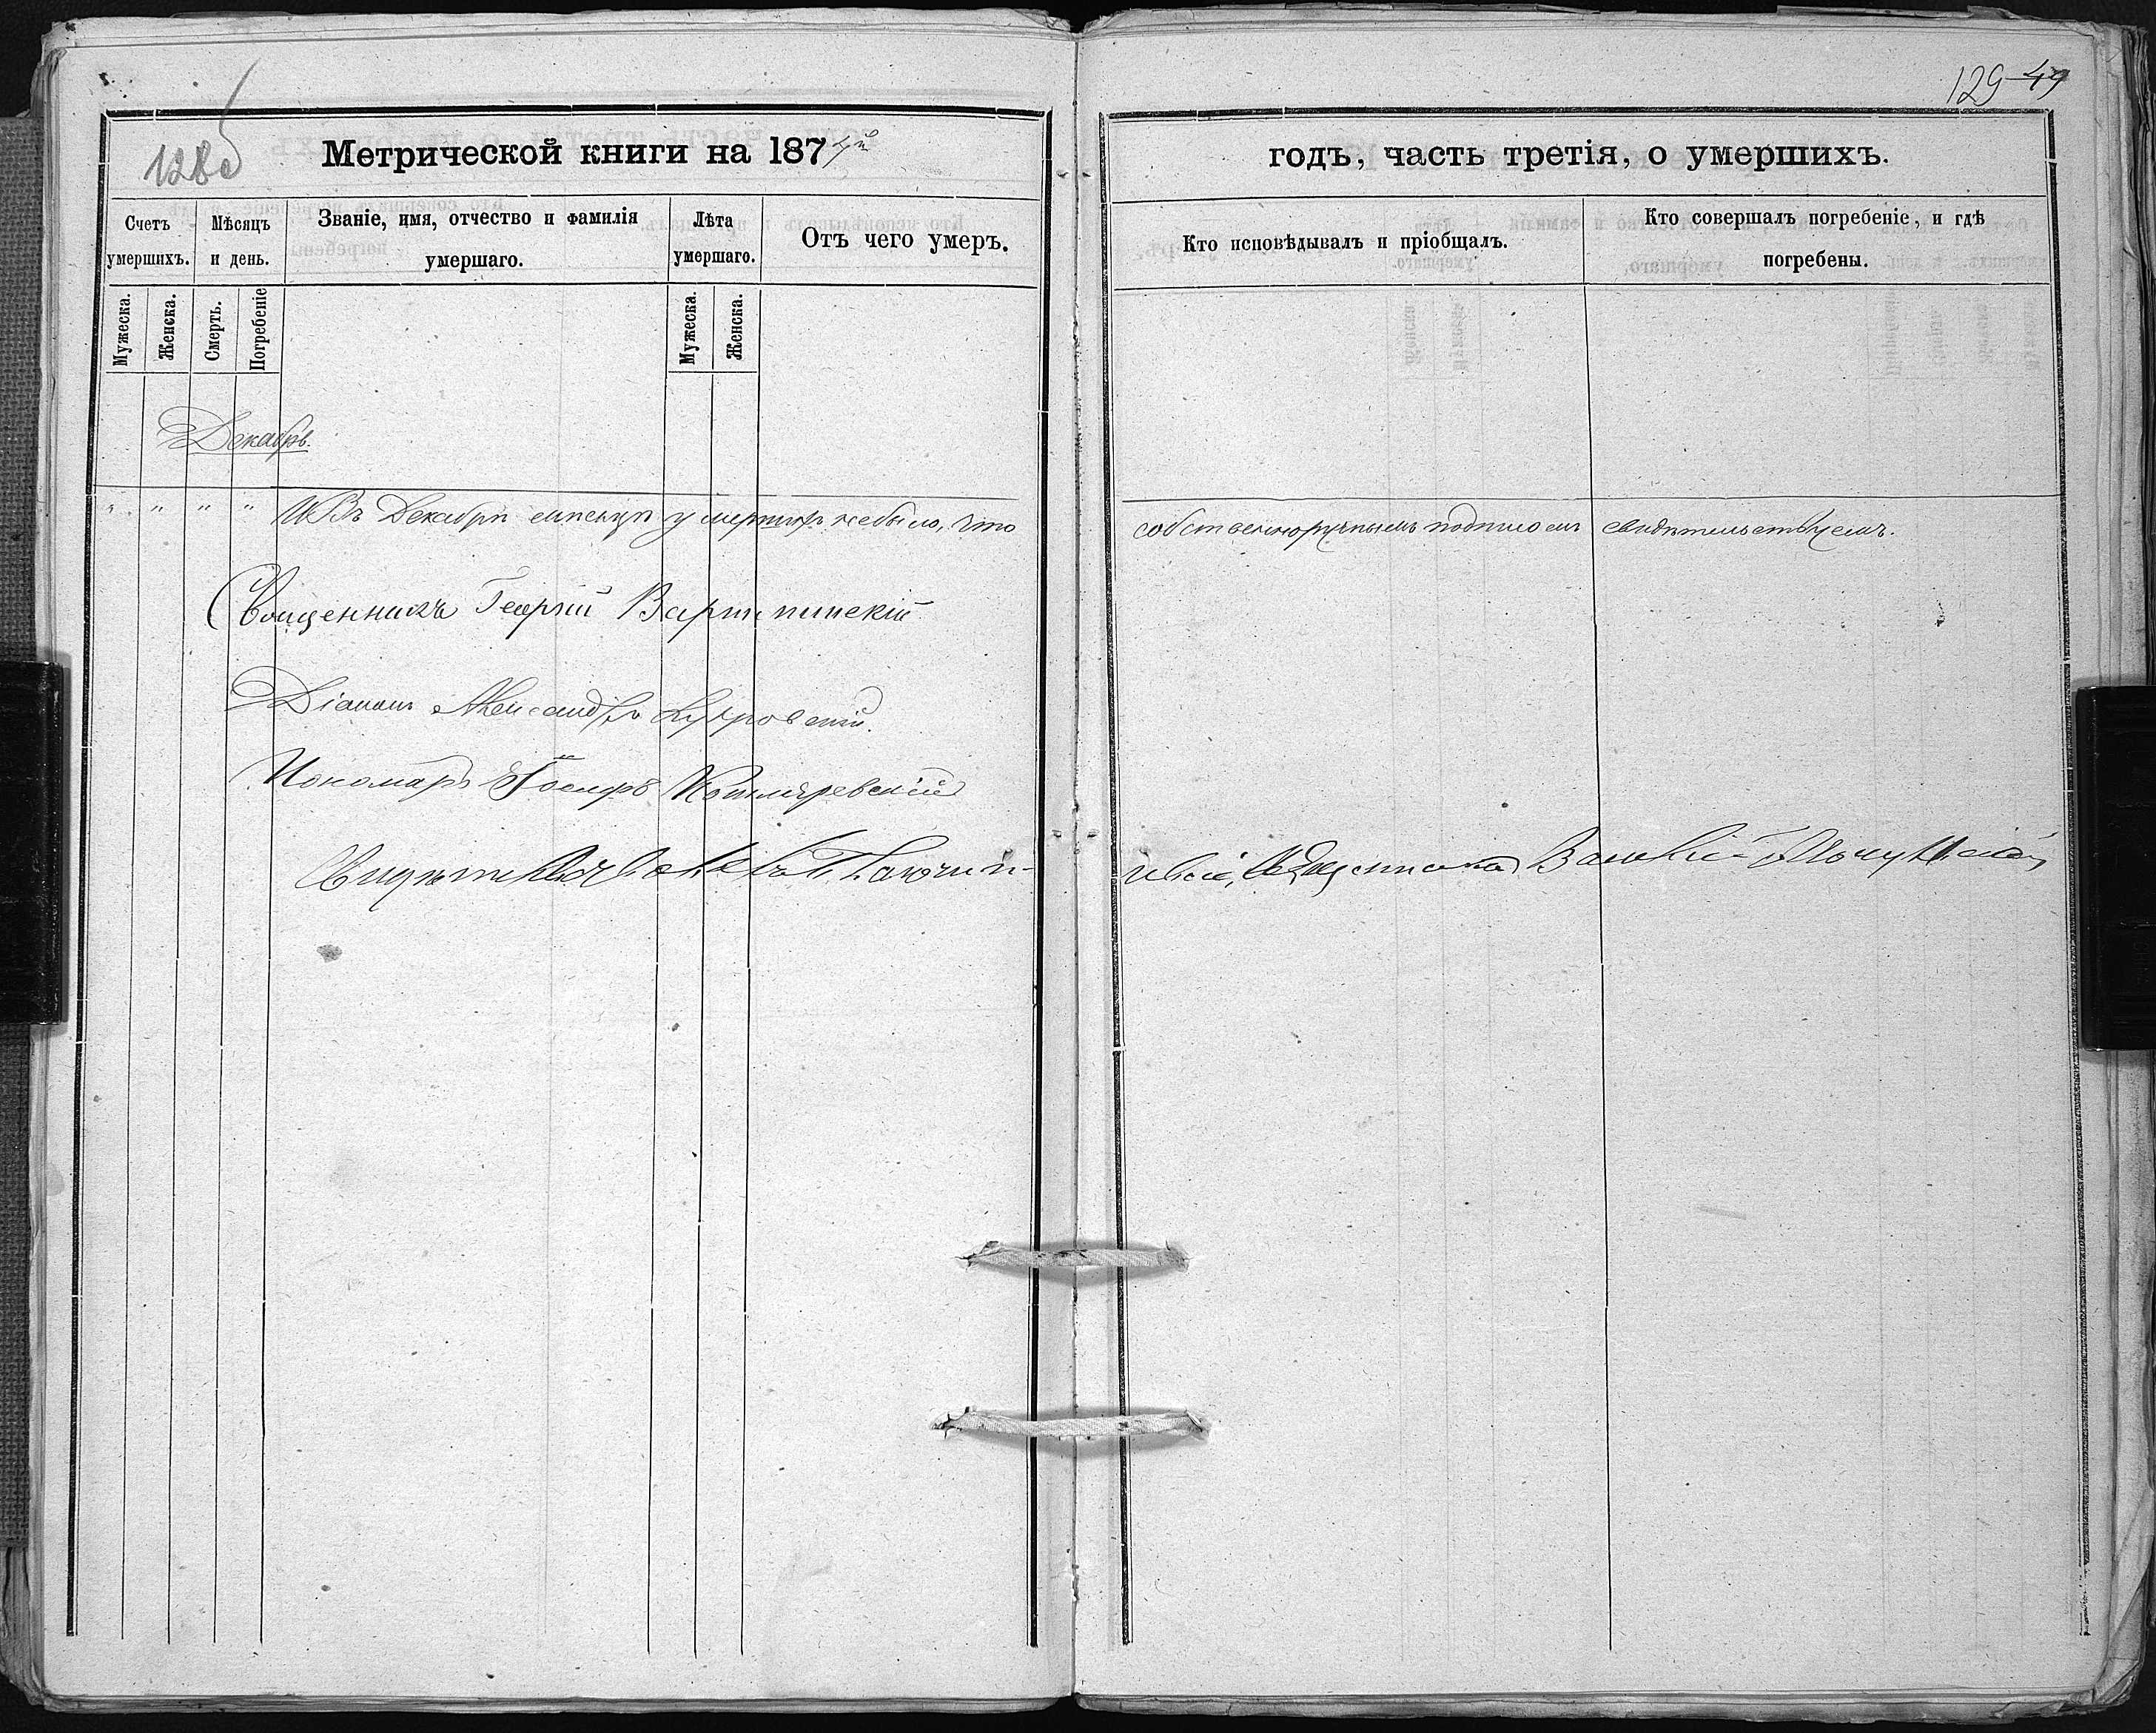 128об
129 49
Метрической книги на 1874й годъ, часть третія, о умершихъ.
Счетъ умершихъ.
Мѣсяцъ и день.
Званіе, имя, отчество и фамилія умершаго.
Лѣта умершаго.
Отъ чего умеръ.
Кто исповѣдывалъ и пріобщалъ.
Кто совершалъ погребеніе, и гдѣ погребены.
Мужеска.
Женска.
Смерть.
Погребеніе
Мужеска.
Женска.
Декабрь.
" " " " Въ Декабрѣ мѣсяцѣ умершихъ небыло, что собственноручнымъ подписомъ свидѣтельствуемъ.
Священникъ Георгій
Діаконъ Александръ
Пономарь Іосифъ Котляревскій
Священникъ